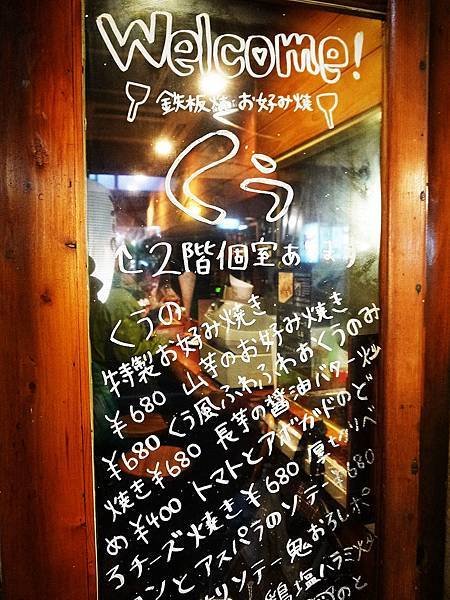 Welcome!
鉄板焼 お好み焼
くう
↑2階個室あります
くうの
特製お好み焼き
¥680 山芋のお好み焼き
¥680 くう風ふわふわおくうのみ
焼き¥680 長芋の醤油バター炒
め ¥400 トマトとアボガドのど
ろチーズ焼き¥680 厚切りベ
コンとアスパラのソテー¥680
ソテー鬼おろしポ
鶏塩ハラミ炒
のと